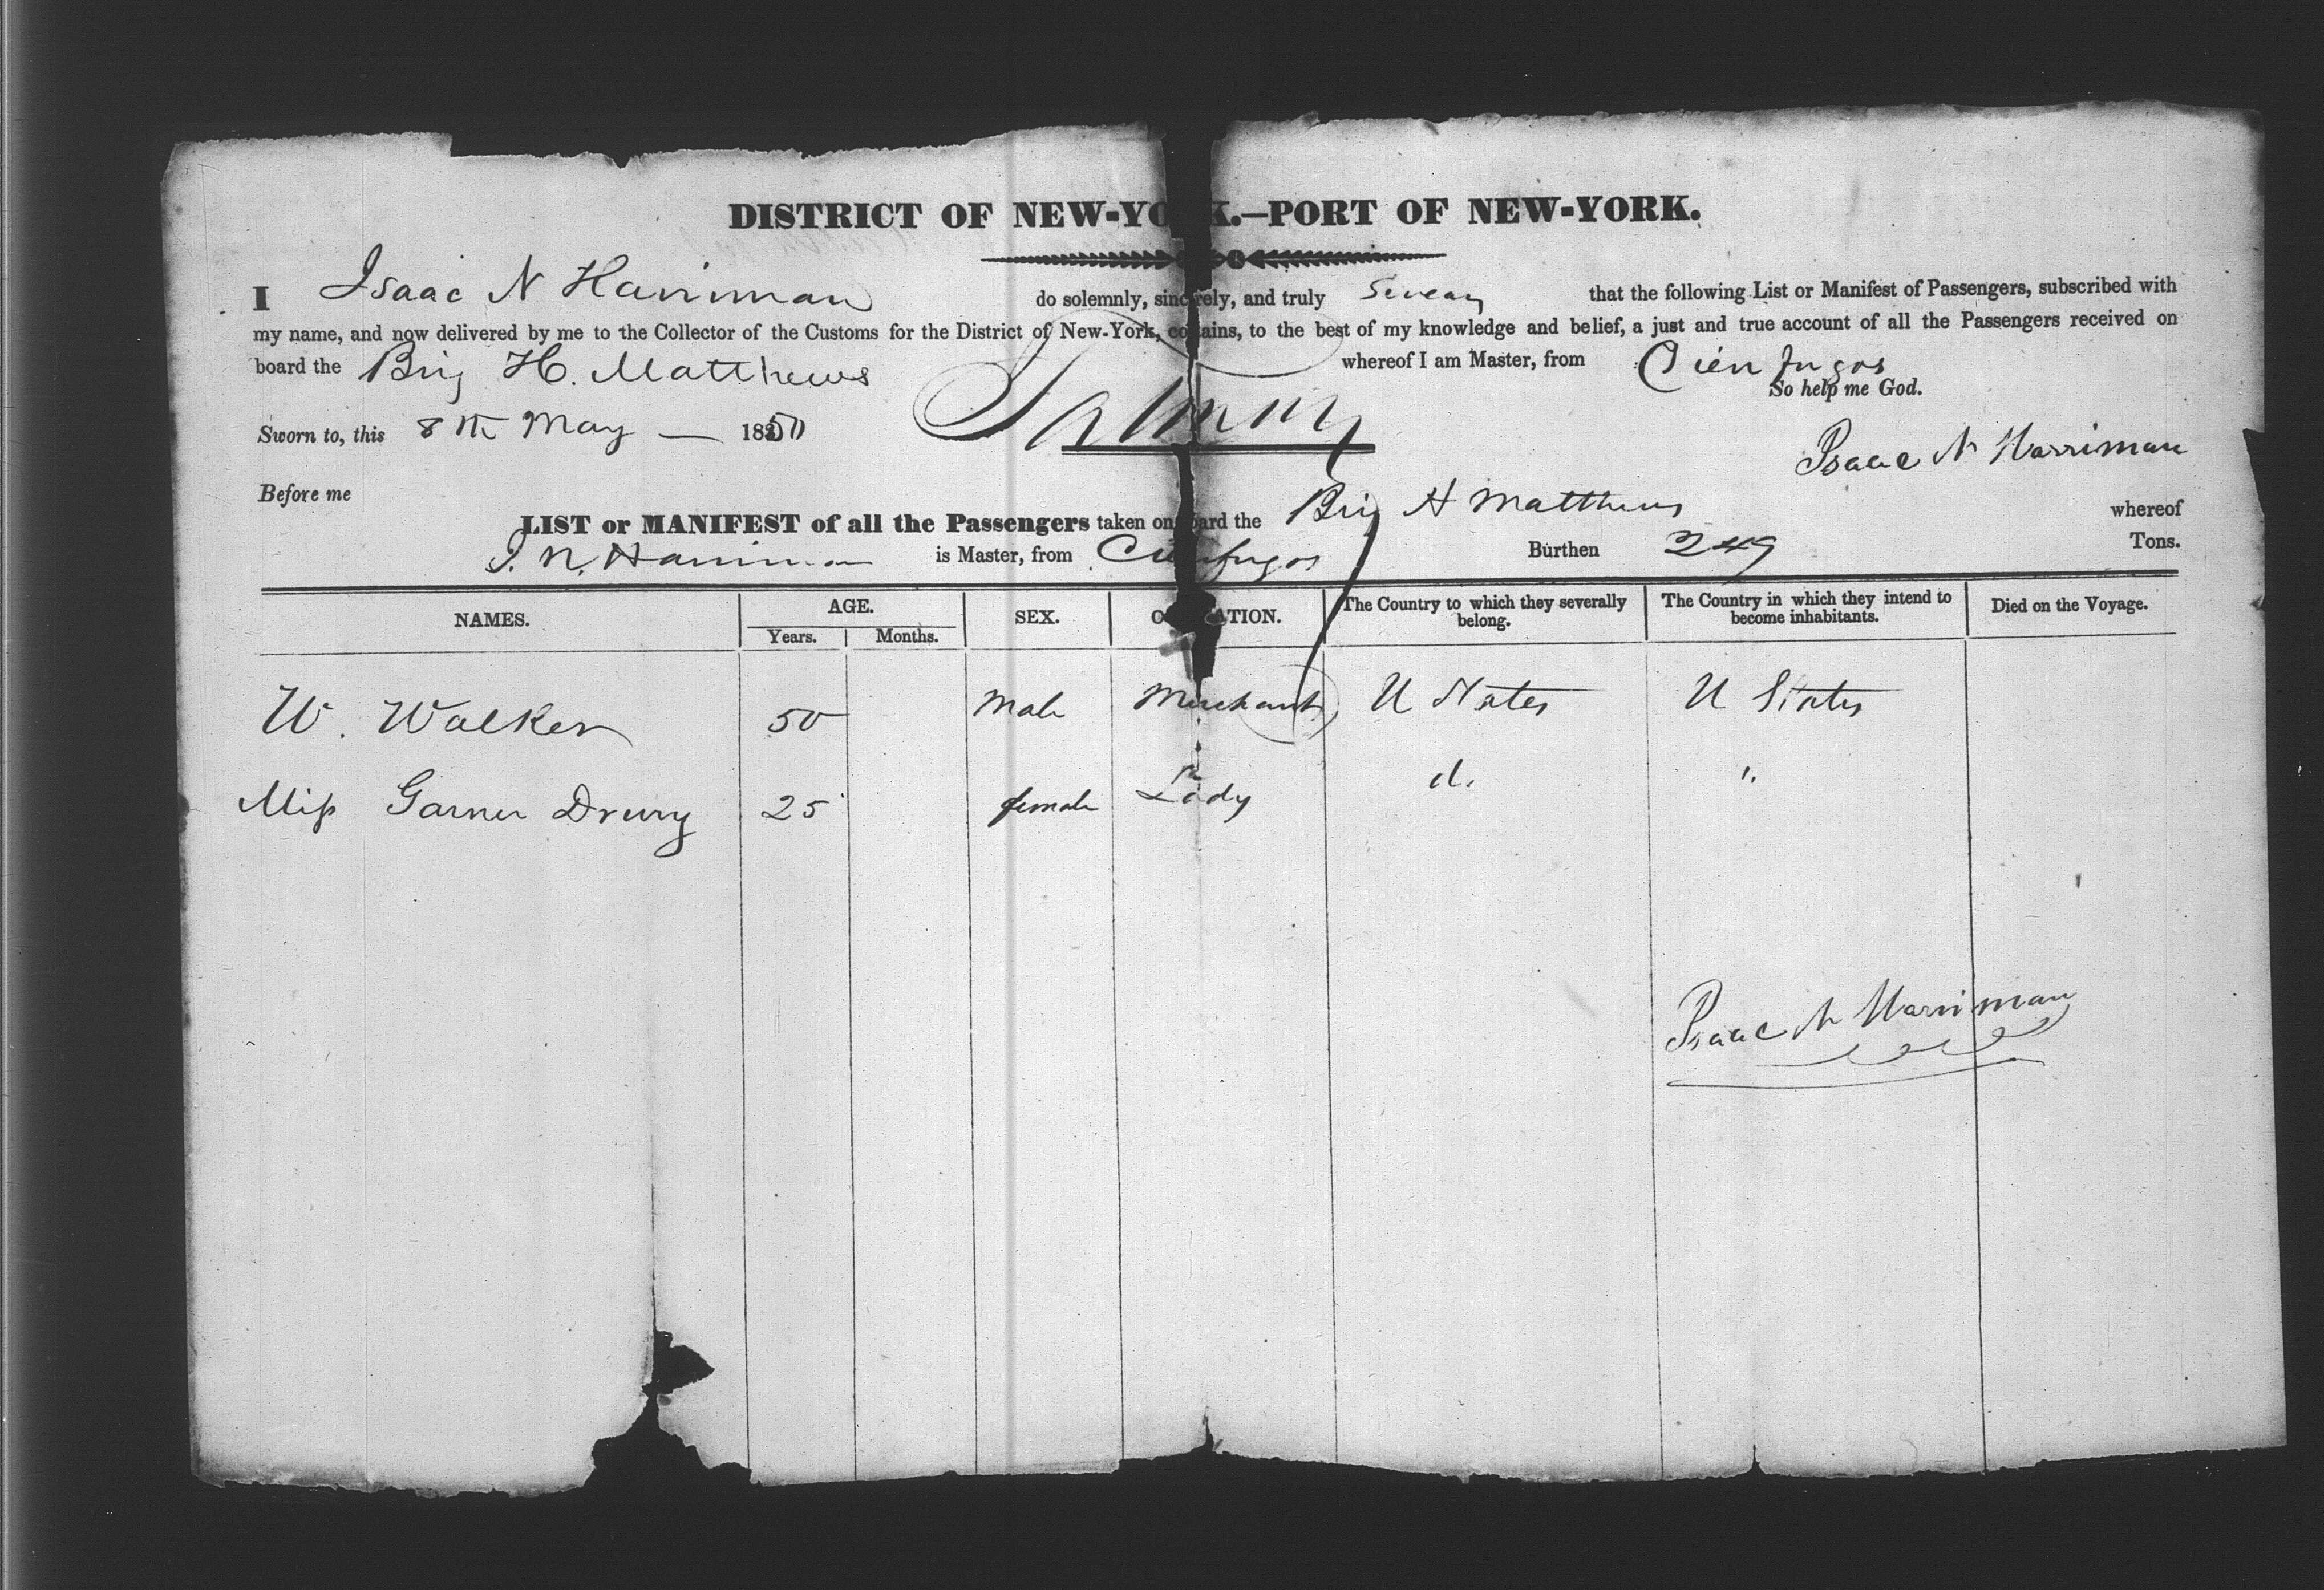 DISTRICT OF NEW-YORK.—PORT OF NEW-YORK.
I Isaac N Harriman do solemnly, sincerely, and truly Swear that the following List or Manifest of Passengers, subscribed with
my name, and now delivered by me to the Collector of the Customs for the District of New-York, contains, to the best of my knowledge and belief, a just and true account of all the Passengers received on
board the Brig H. Matthews whereof I am Master, from Cienfugos
So help me God.
Sworn to, this 8th May — 1850
Isaac N Harriman
Before me
LIST or MANIFEST of all the Passengers taken on board the Brig H Matthews whereof
I. N. Harriman is Master, from Cienfugos Burthen 249 Tons.
NAMES. AGE. SEX. OCCUPATION. The Country to which they severally belong. The Country in which they intend to become inhabitants. Died on the Voyage.
Years. Months.
W. Walker 50 Male Merchant U States U States
Miss Garner Drury 25 female Lady d. "
Isaac N Harriman